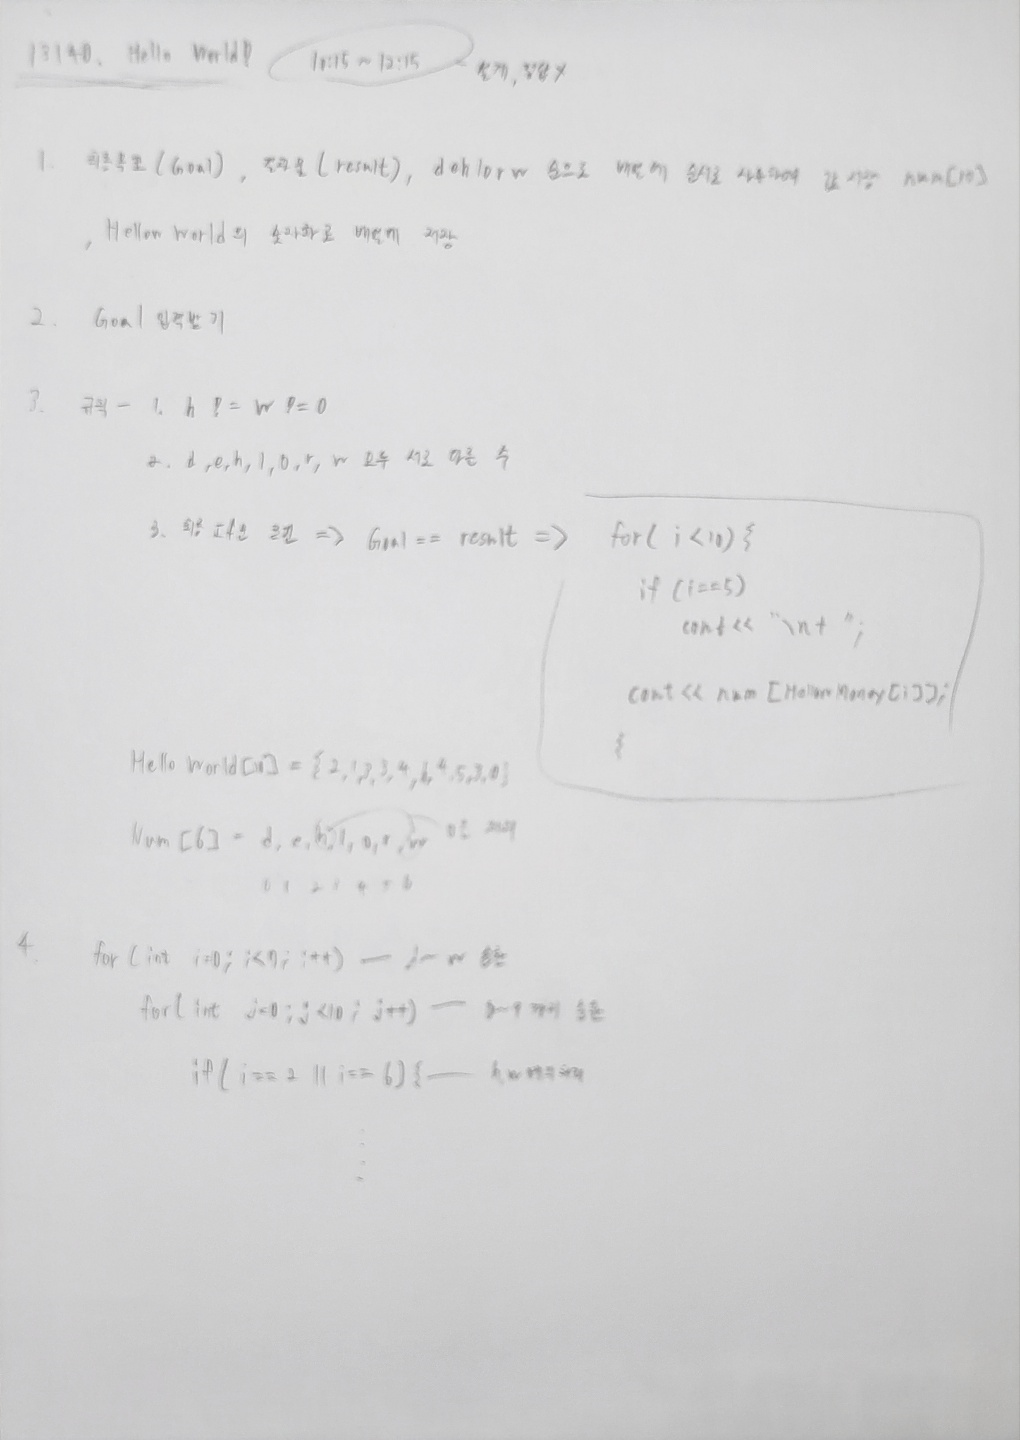 13140. Hello World!
11:15 ~ 12:15
설계, 정답 X
1. 최종목표 (Goal), (result), dehlorw 순으로 배열에 순서로 값 저장 num[10]
, Hellow World의 숫자화로 배열에 저장
2. Goal 입력받기
3. 규칙 - 1. h != w != 0
2. d, e, h, l, o, r, w 모두 서로 다른 수
3. 최종 조건 => Goal == result =>
for( i <10) {
if (i==5)
cout << "\n+ ";
cout << num [Hellow Money[i]];
{
Hello World[10] = {2,1,3,3,4,6,4,5,3,0}
Num [6] = d, e, h, l, o, r, w 0은 제외
0 1 2 3 4 5 6
4. for (int i=0; i<7; i++) — d~w 순환
for( int j=0; j<10; j++) — 0~9 까지 순환
if( i==2 || i==6) { — h w